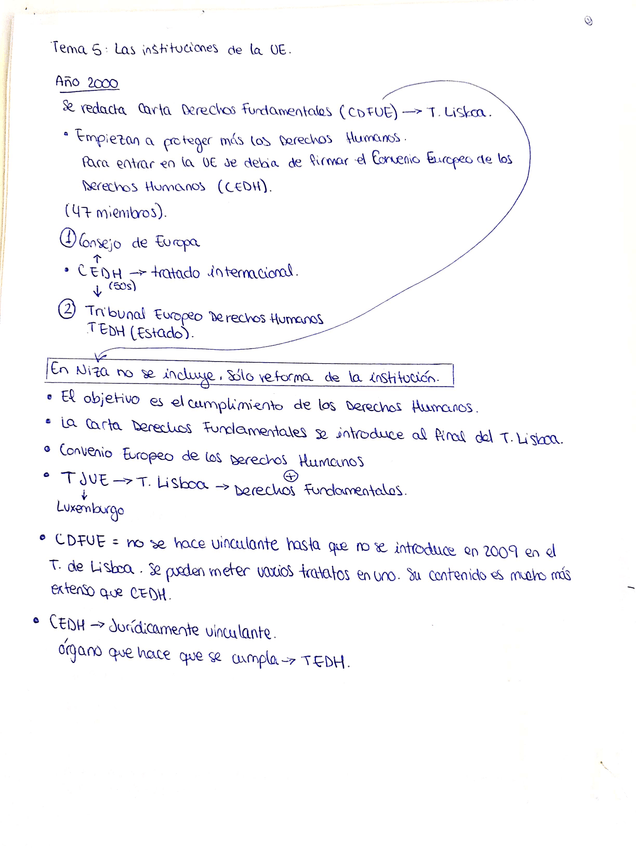 Tema 5: Las instituciones de la UE.
Año 2000
Se redacta Carta Derechos Fundamentales (CDFUE) → T. Lisboa.
• Empiezan a proteger más los Derechos Humanos.
Para entrar en la UE se debía de firmar el Convenio Europeo de los
Derechos Humanos (CEDH).
(47 miembros).
① Consejo de Europa
↑
• CEDH → tratado internacional.
↓ (50s)
② Tribunal Europeo Derechos Humanos
TEDH (Estado).
En Niza no se incluye, sólo reforma de la institución.
• El objetivo es el cumplimiento de los Derechos Humanos.
• La Carta Derechos Fundamentales se introduce al final del T. Lisboa.
• Convenio Europeo de los Derechos Humanos
• TJUE → T. Lisboa → Derechos ⊕ Fundamentales.
↓
Luxemburgo
• CDFUE = no se hace vinculante hasta que no se introduce en 2009 en el
T. de Lisboa. Se pueden meter varios tratatos en uno. Su contenido es mucho más
extenso que CEDH.
• CEDH → Jurídicamente vinculante.
órgano que hace que se cumpla → TEDH.